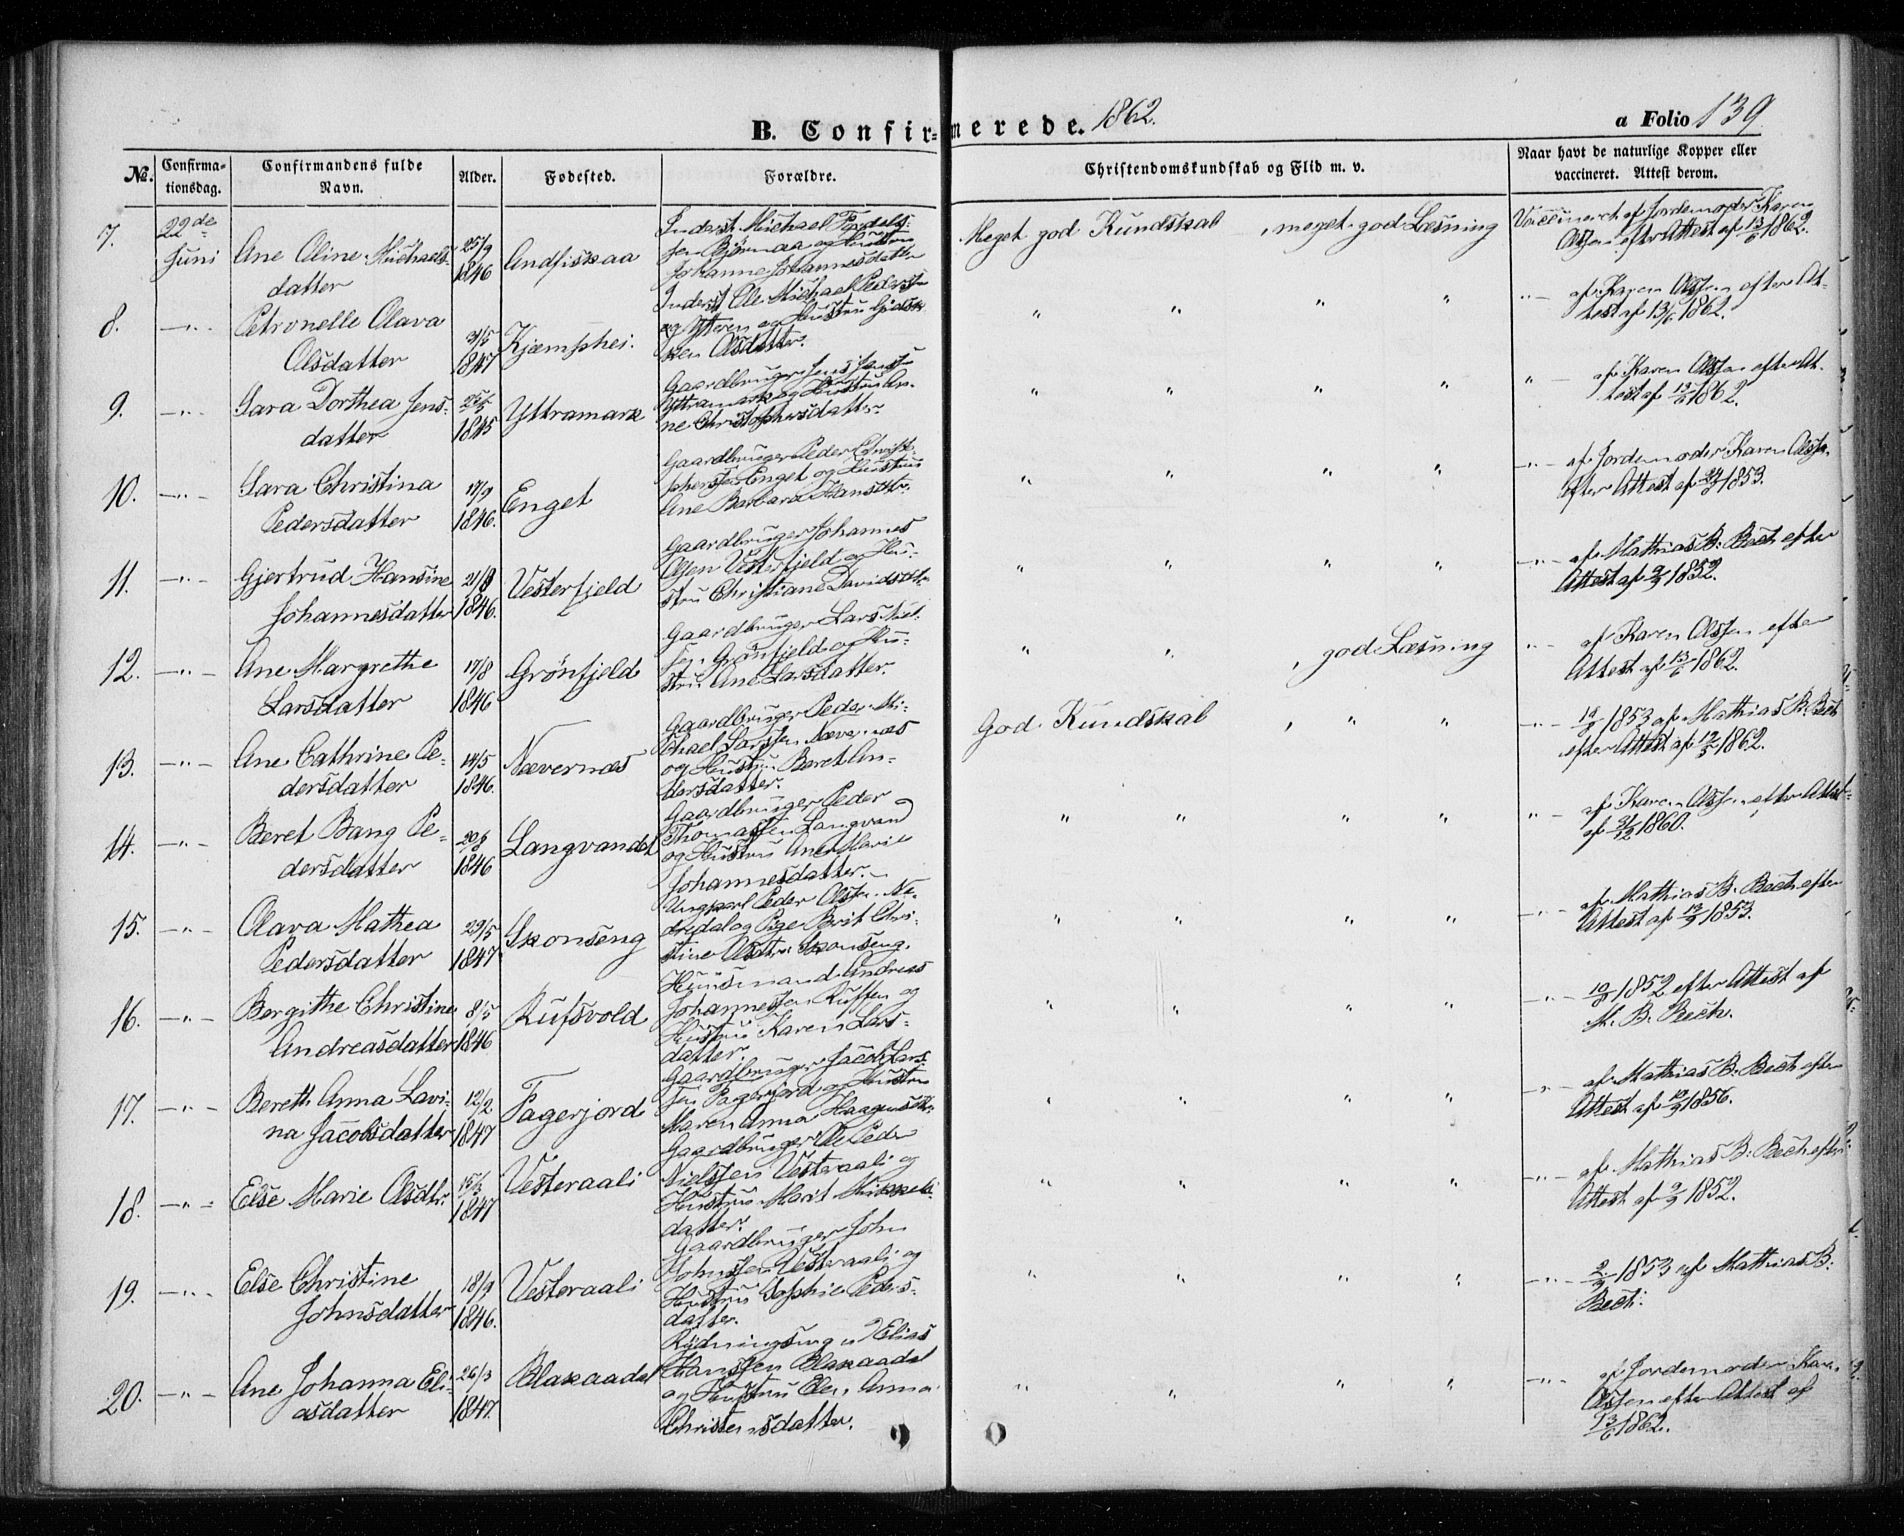 B. Confirmerede. 1862. a Folio 139
No. Confirmationsdag. Confirmandens fulde Navn. Alder. Fødested. Forældre. Christendomskundskab og Flid m. v. Naar havt de naturlige Kopper eller vaccineret. Attest derom.
7. 22de Juni
Ane Oline Michaels-
datter
25/9 1846
Andfiskaa
Inderst Michael
sen Bjørnaa og Hustru
Johanne Johannesdatter
Meget god Kundskab, meget god Læsning
Vaccineret af Jordemoder Karen
Olssen efter Attest af 13/6 1862.
8. —"—
Petronelle Olava
Olsdatter
31/5 1847
Kjæmphei.
Inderst Ole Michael Peders
og Ytteren og Hustru
Olsdatter.
" " " "
"— af Karen Olssen efter At-
test af 13/6 1862.
9. —"—
Sara Dorthea Jens-
datter
1845
Yttramark
Gaardbruger Jens Jens
Yttramark og Hustru An-
ne Christophersdatter
" " " "
"— af Karen Olssen efter At-
test af 13/6 1862.
10. —"—
Sara Christina
Pedersdatter
17/9 1846.
Enget
Gaardbruger Peder Christo-
phersen Enget og Hustru
Ane Barbara Hansdtr.
" " " "
—"— af Jordemoder Karen Olssen
efter Attest af 1853.
11. —"—
Gjertrud Hansine
Johannesdatter
21/8 1846.
Vesterfjeld
Gaardbruger Johannes
Olsen Vesterfjeld og Hu-
stru Christiane Davidsdtr
" " " "
—"— af Mathias B. Bech efter
Attest af 2/9 1852.
12. —"—
Ane Margrethe
Larsdatter
17/8 1846
Grönfjeld
Gaardbruger Lars Niel-
sen Grönfjeld og Hu-
stru Ane Larsdatter.
" " , god Læsning
"— af Karen Olssen efter
Attest af 13/6 1862.
13. —"—
Ane Cathrine Pe-
dersdatter
14/5 1846.
Nævernæs
Gaardbruger Peder Mi-
chael Larssen Nævernæs
og Hustru Beret An-
dersdatter.
God Kundskab , " "
—"— 1853 af Mathias B. Bech
efter Attest af 1862.
14. —"—
Beret Bang Pe-
dersdatter
20/8 1846
Langvandet
Gaardbruger Peder
Thomassen Langvand
og Hustru Ane Marie
Johannesdatter.
" " " "
"— af Karen Olssen efter Attest
af 1860.
15. —"—
Olava Mathea
Pedersdatter
29/5 1847
Skonseng
Ungkarl Peder Olssen Ne-
dredal og Pige Berit Chri-
stine Olsdtr. Skonseng.
" " " "
—"— af Mathias B. Bech efter
Attest af 1853.
16. —"—
Bergithe Christine
Andreasdatter
8/5 1846
Rufsvold
Huusmand Andreas
Johannessen Ruffen og
Hustru Karen Lars-
datter.
" " " "
—"— 1852 efter Attest af
M. B. Bech.
17. —"—
Bereth Anna Lavi-
na Jacobsdatter
12/2 1847
Fagerjord
Gaardbruger Jacob Lars-
sen Fagerjord og Hustru
Maren Anna Haagensdtr.
" " " "
"— af Mathias B. Bech efter
Attest af 1856.
18. —"—
Else Marie Olsdtr.
1847
Vesteraali
Gaardbruger Ole Peder
Nielssen Vesteraali og
Hustru Marit Mikkels-
datter.
" " " "
—"— af Mathias B. Bech efter
Attest af 2/9 1852.
19. —"—
Else Christine
Johnsdatter
18/9 1846.
Vesteraali
Gaardbruger John
Johnssen Vesteraali og
Hustru Sophie Peders-
datter.
" " " "
—"— 2/9 1853 af Mathias B.
Bech.
20. —"—
Ane Johanna Eli-
asdatter
26/3 1847.
Blakaadal
Rydningsmand Elias
Hanssen Blakaadal
og Hustru Elen Anna
Christensdatter.
" " " "
—"— af Jordemoder Karen
Olssen efter Attest af
13/6 1862.